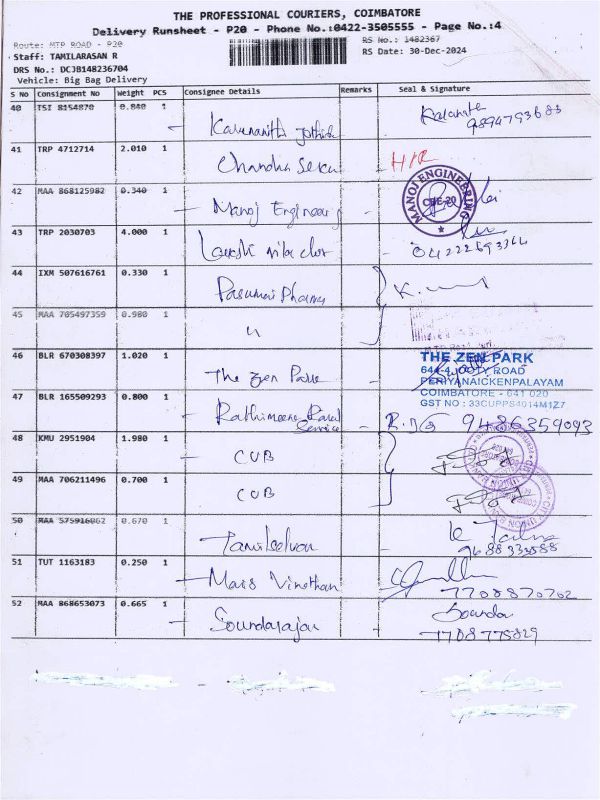 THE PROFESSIONAL COURIERS, COIMBATORE
Delivery Runsheet - P20 - Phone No.:0422-3505555 - Page No.:4
Route: MTP ROAD - P20
RS No.: 1482367
Staff: TAMILARASAN R
RS Date: 30-Dec-2024
DRS No.: DCJB148236704
Vehicle: Big Bag Delivery
S No Consignment No Weight PCS Consignee Details Remarks Seal & Signature
40 TSI 8154870 0.840 1
41 TRP 4712714 2.010 1 Chandra Seku - H/R
42 MAA 868125982 0.340 1
- Manoj Engineering -
MANOJ ENGINEERING
CBE-20
43 TRP 2030703 4.000 1
44 IXM 507616761 0.330 1
Pasumai Pharmy
45 MAA 705497359 0.980 1
"
46 BLR 670308397 1.020 1
The Zen Park
THE ZEN PARK
644-4, OOTY ROAD
PERIYANAICKENPALAYAM
COIMBATORE - 641 020
GST NO : 33CUPPS4014M1Z7
47 BLR 165509293 0.800 1
Service 9486359093
48 KMU 2951904 1.980 1
- CUB
49 MAA 706211496 0.700 1
CUB
50 MAA 575916062 0.670 1
Tamilselvan
9688333588
51 TUT 1163183 0.250 1
- Mars Vinothan -
7708870702
52 MAA 868653073 0.665 1
- Soundarajan - Soundar
7708775829